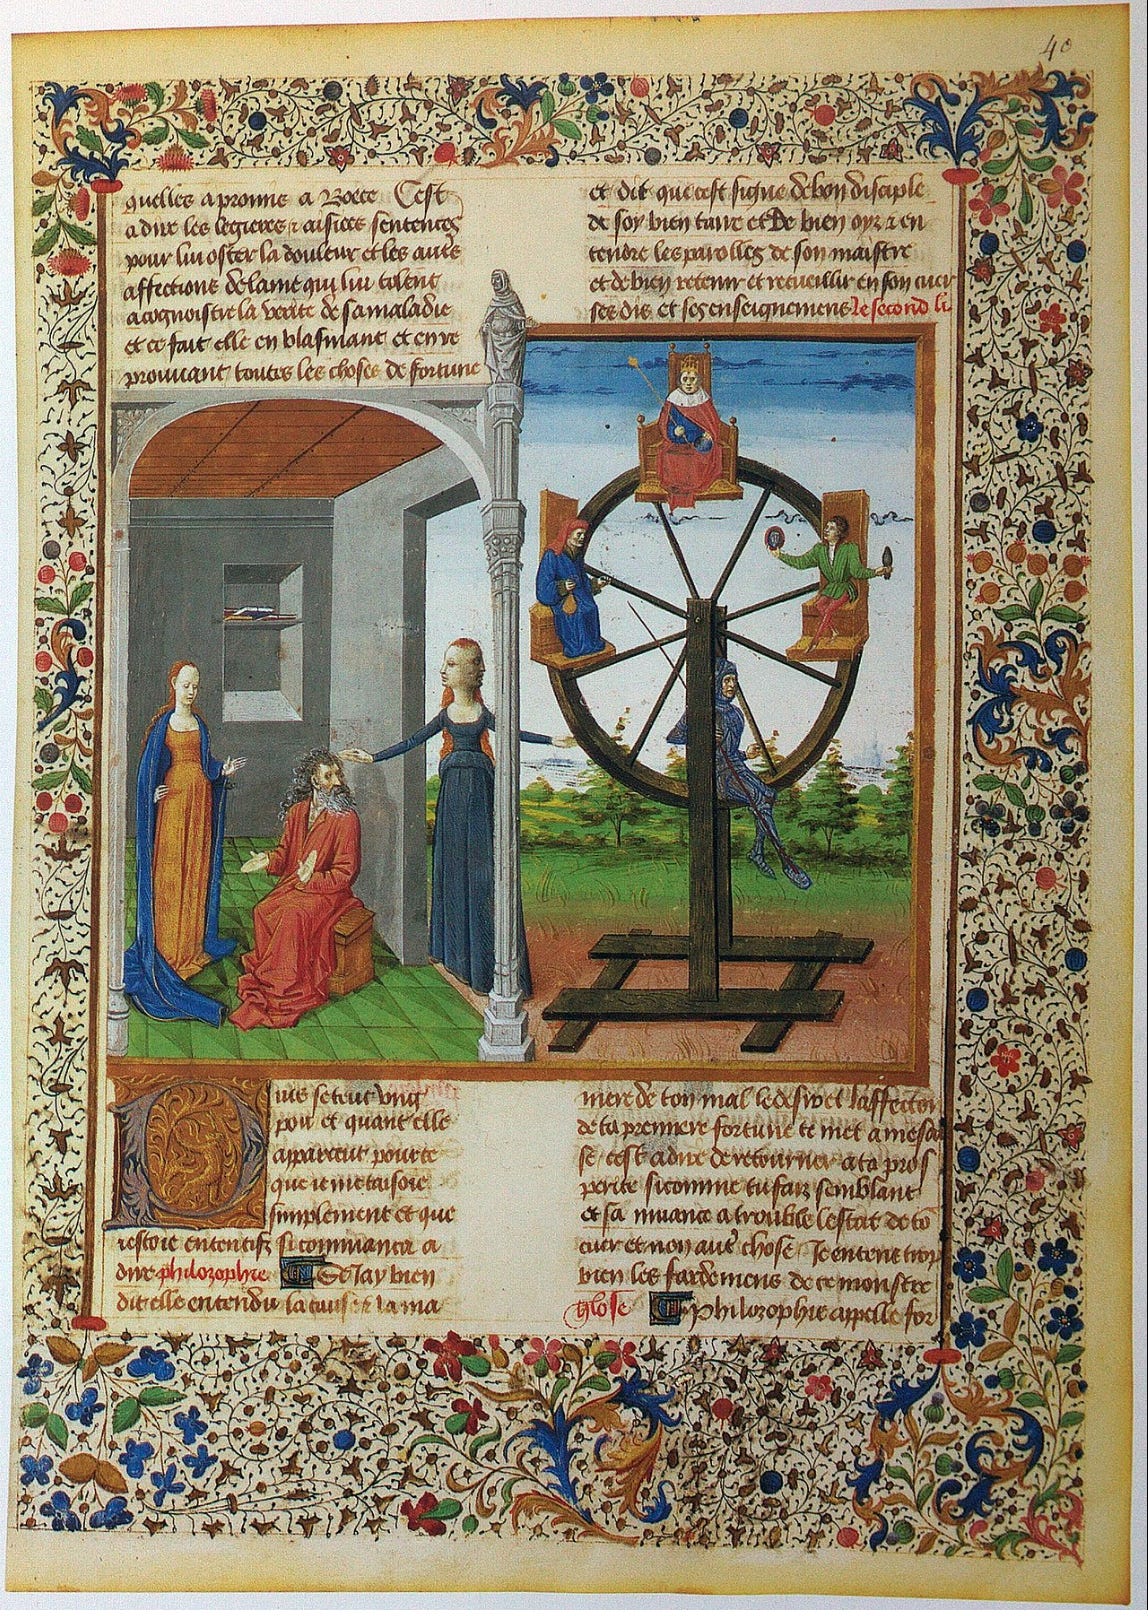 40
quelles a pronne a Boece Cest
a dire les legieres & aisiees sentences
pour lui oster la douleur et les aultres
affections de lame qui lui tolent
a cognoistre la verite de sa maladie
et ce fait elle en blasmant et en re
prouvant toutes les choses de fortune
et dit que cest signe de bon disciple
de soy bien taire et de bien oyr & en
tendre les parolles de son maistre
et de bien retenir et recueillir en son cuer
ses dis et ses enseignemens le second li
uis se teut ung
pou et quant elle
apparceut pource
que ie me taisoie
simplement et que
iestoie ententifz si commenca a
dire philozophie Se Jay bien
dit elle entendu la cause & la ma
niere de ton mal le desir et laffection
de ta premiere fortune te met a mesai
se cest a dire de retourner a ta pros
perite si comme tu fais semblant
et sa muance a trouble lestat de to
cuer et non autre chose Je entens trop
bien les fardemens de ce monstre
Glose Philozophie appelle for